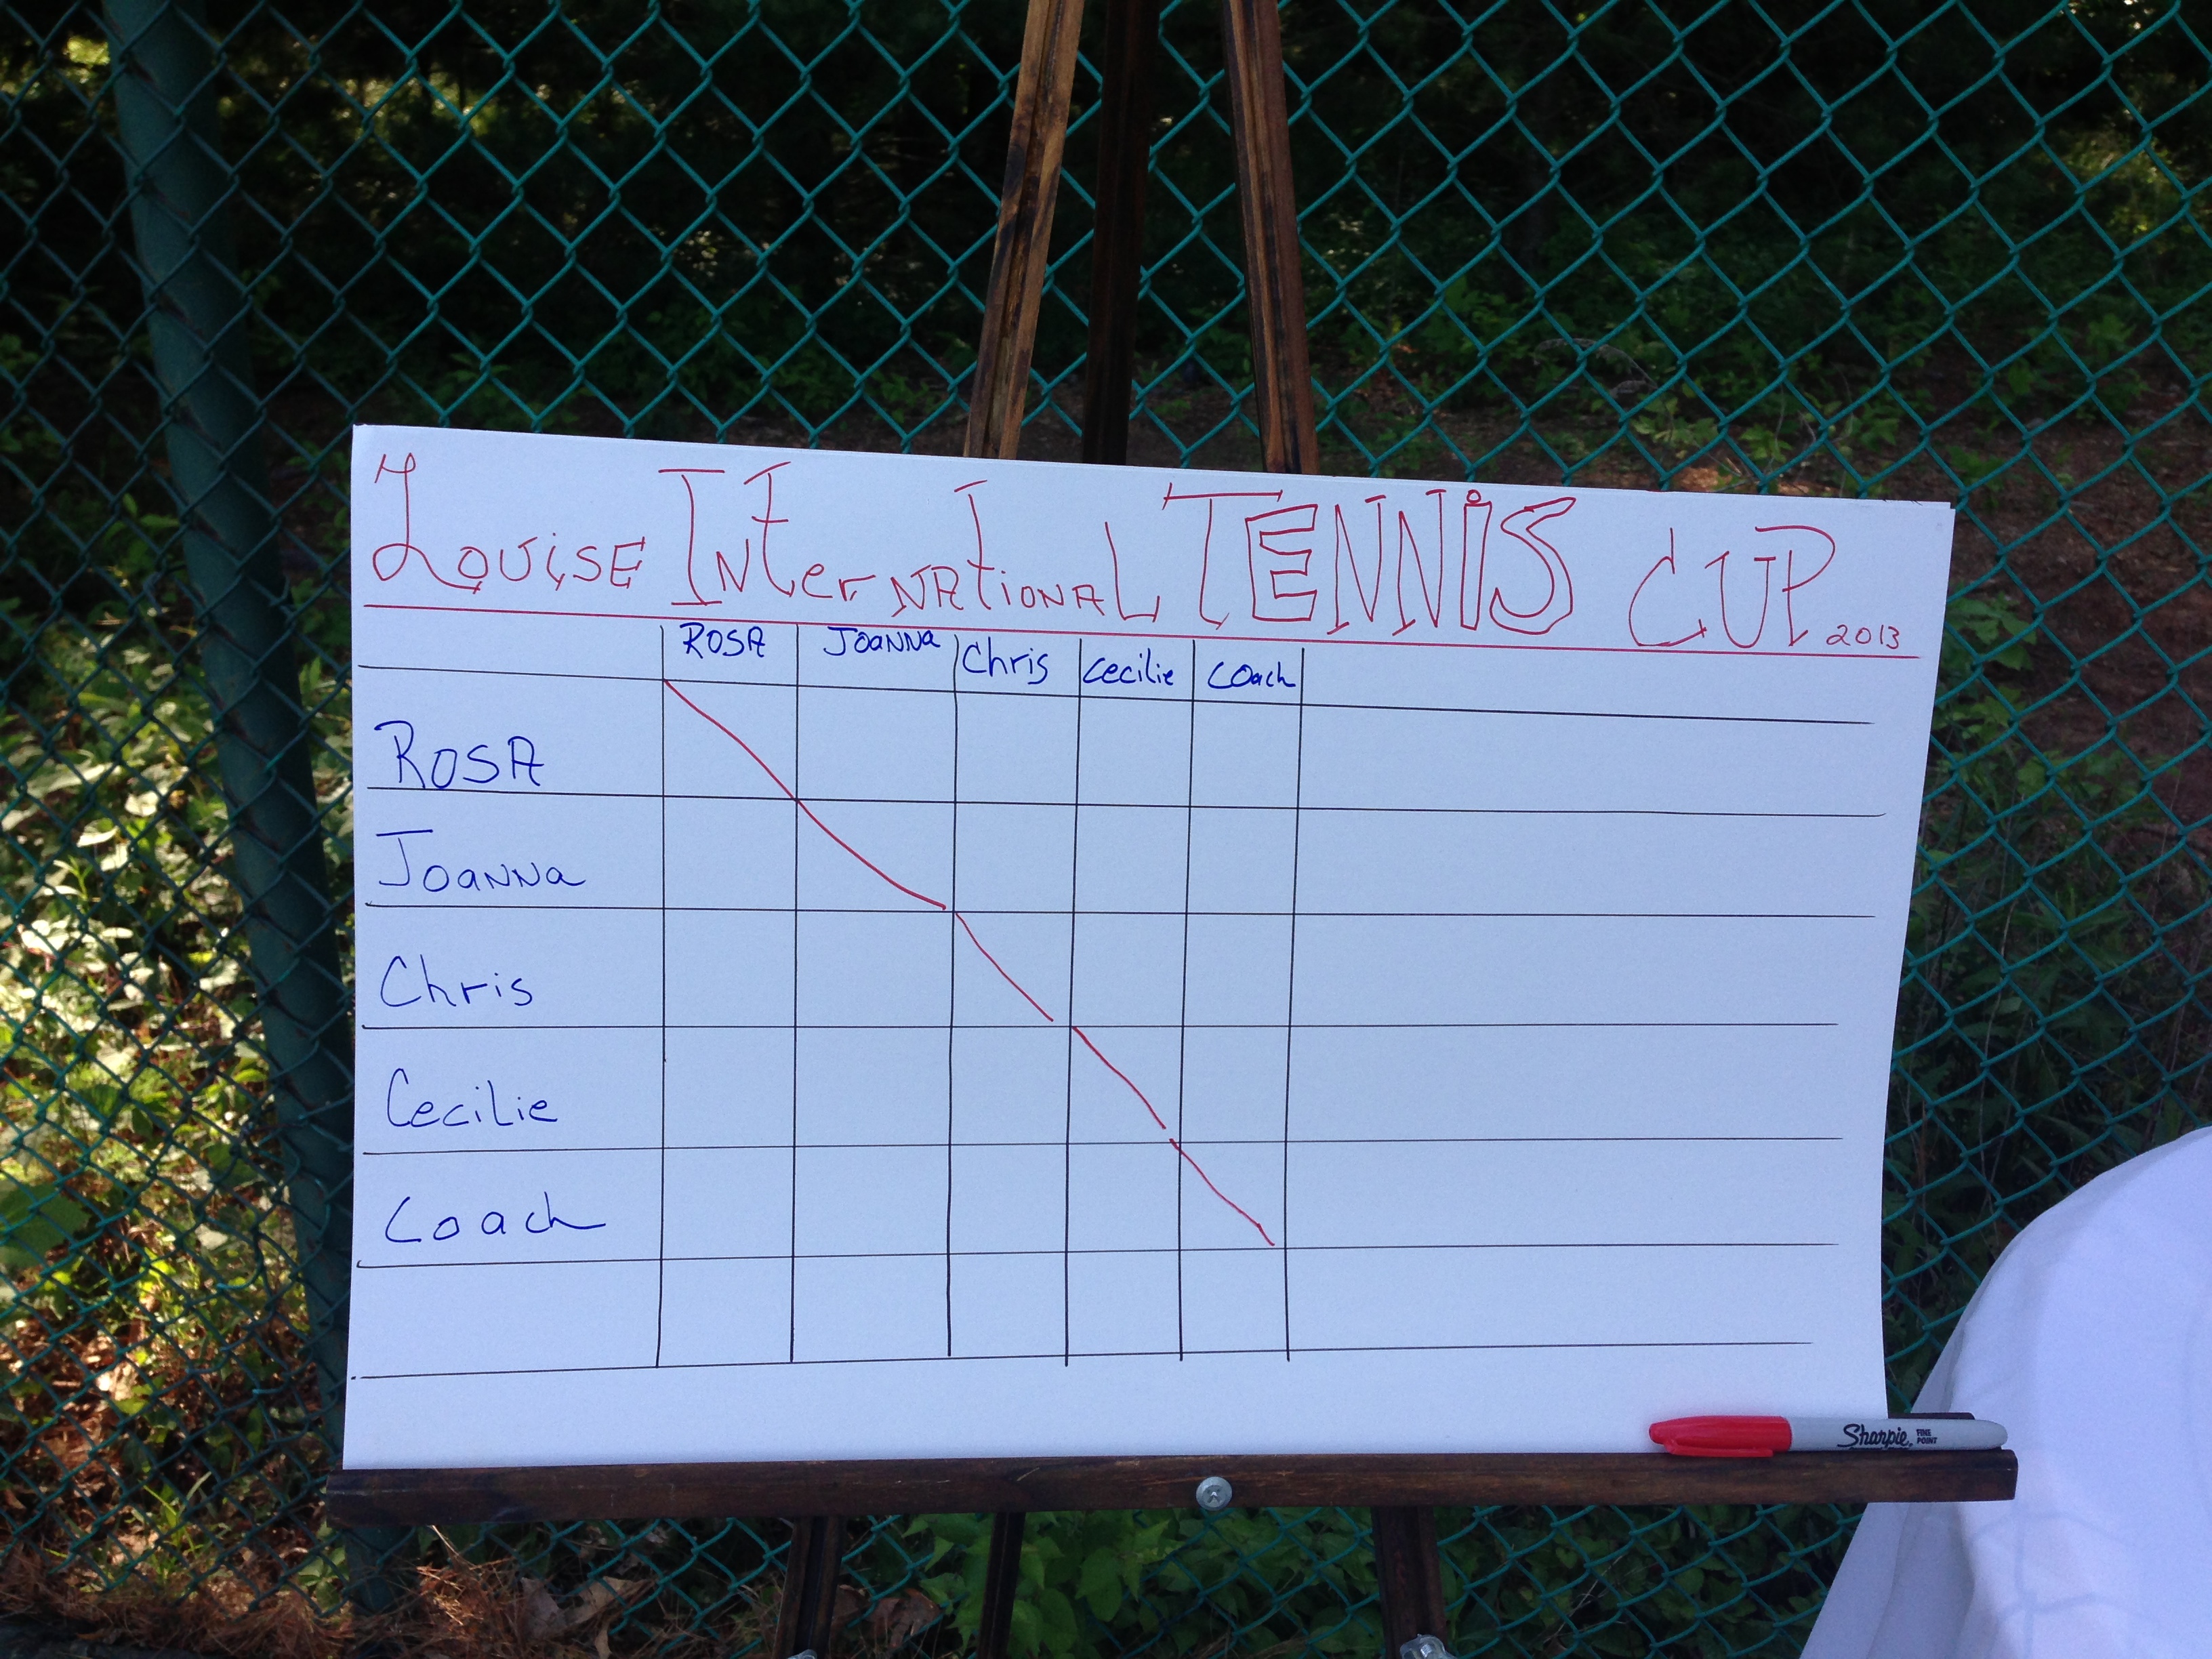 Louise InternationaL TENNiS CUP 2013
ROSA Joanna Chris Cecilie Coach
ROSA
Joanna
Chris
CeciLie
Coach
Sharpie. FINE POINT